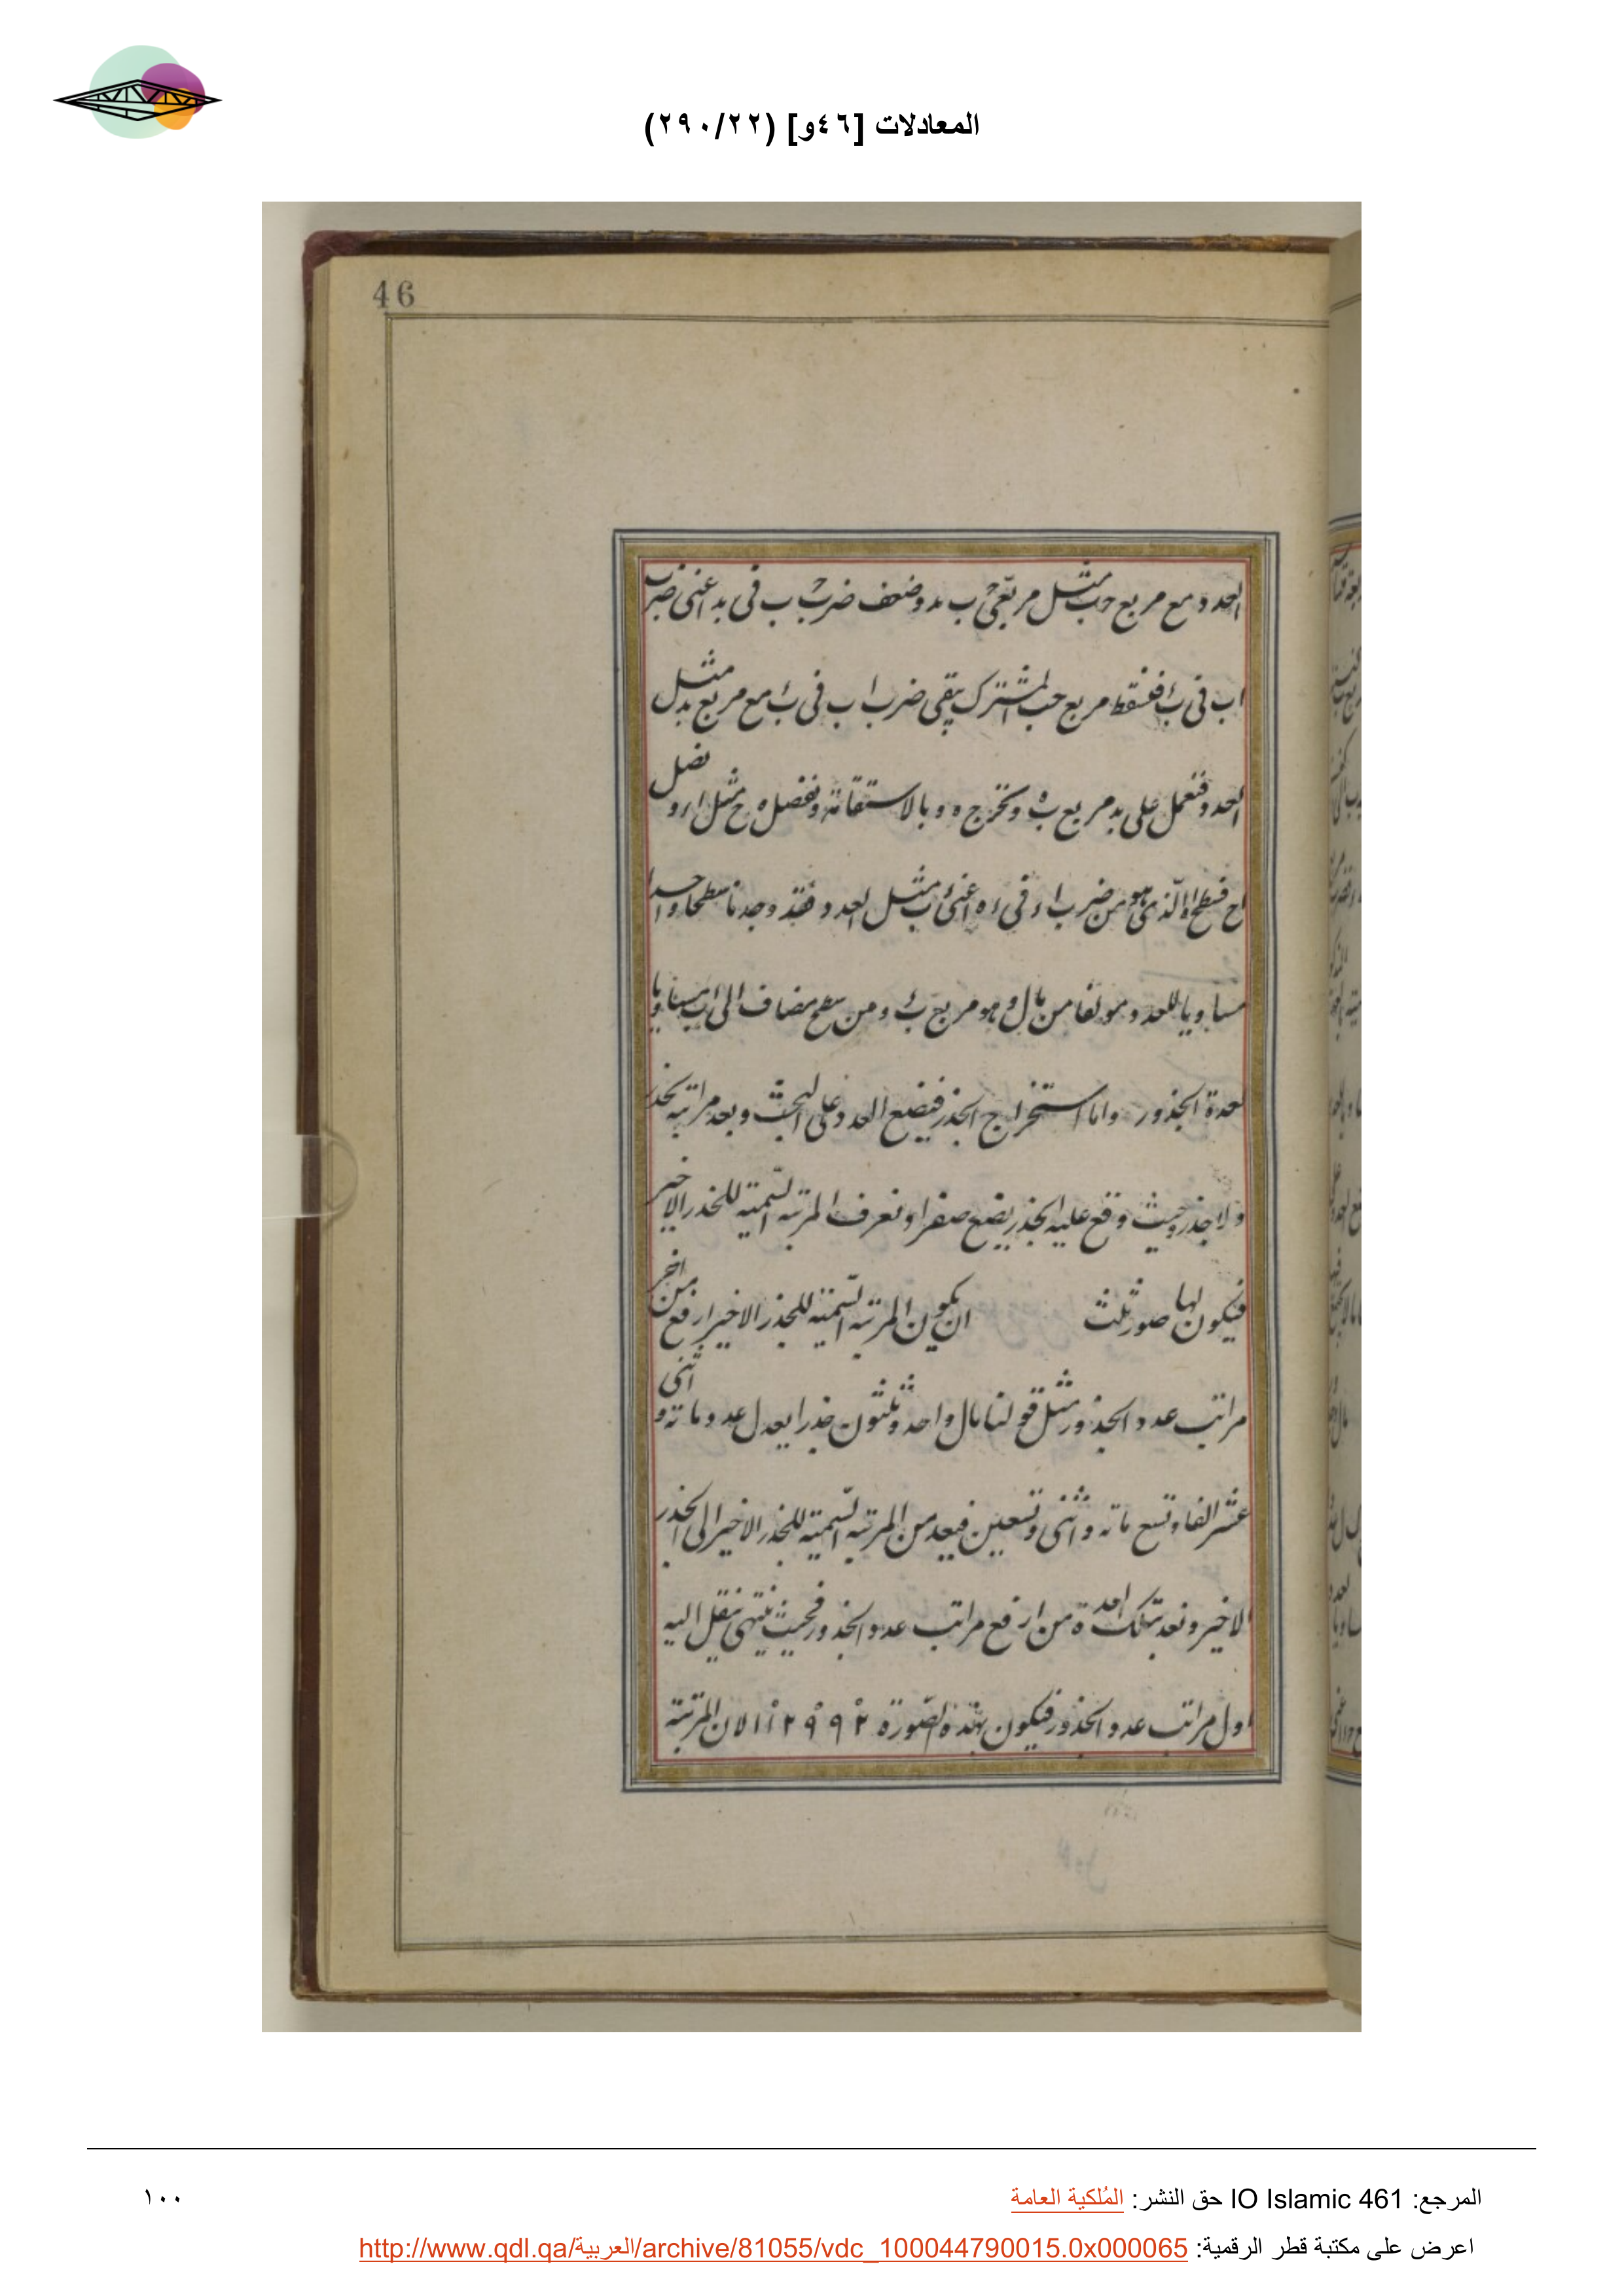 المعادلات [٤٦و] (٢٩٠/٢٢)
46
العدد مع مربع حب مثل مربعی ح ب بد وضعف ضرب ح ب ب فی بد اعنی ضرب
اب فی ب‍ء فنسقط مربع حب المشترک یبقی ضرب اب فی ب‍ء مع مربع بد مثل
العدد فنعمل علی بد مربع ب‍ه ونخرج ه و بالاستقامة ونفصل ه ح مثل ا ر و نصل
اح فسطح الذی هو من ضرب اء فی ءه اعنی ءب مثل العدد فقد وجدنا سطحا واحدا
مساویا للعدد مولفا من مال و هو مربع ب‍ء ومن سطح مضاف الی ءب مساویا
لعدة الجذور واما استخراج الجذر فیضع العدد علی التخت وبعد مراتبه بجذر
ولا جذر وحیث وقع علیه الجذر یضع صفرا ونعرف المرتبه السمیة للجذر الاخیر
فیکون لها صور ثلث ان یکون المرتبه السمیة للجذر الاخیر ارفع من اخر
مراتب عدد الجذور مثل قولنا مال واحد وثلثون جذرا یعدل عدد مائة و اثنی
عشر الفا وتسع مائه واثنی وتسعین فیعد من المرتبه السمیة للجذر الاخیر الی الجذر
الاخیر ونعد بتلک العدة من ارفع مراتب عدد الجذور فحیث ینتهی ینقل الیه
اول مراتب عدد الجذور فیکون بهذه الصورة ١١٢٩٩٢ لان المرتبة
المرجع: IO Islamic 461 حق النشر: المُلكية العامة
١٠٠
اعرض على مكتبة قطر الرقمية: http://www.qdl.qa/العربية/archive/81055/vdc_100044790015.0x000065